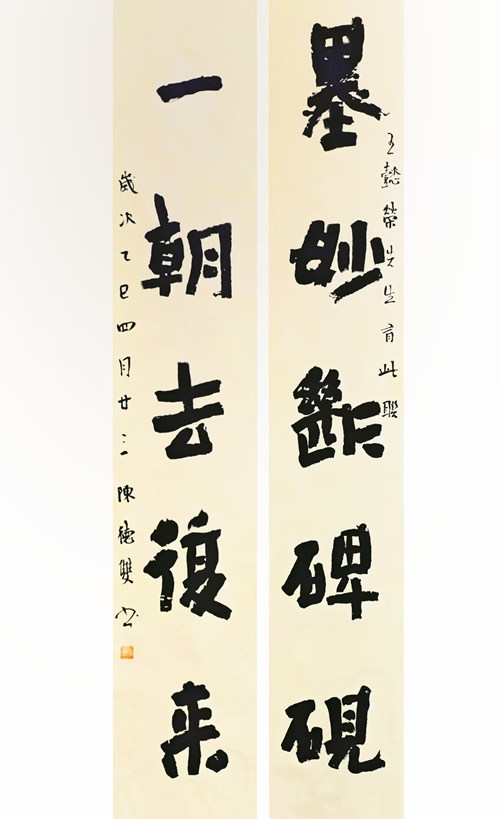 王懿榮先生有此聯
墨妙斷碑硯
一朝去復来
歲次乙巳四月廿三陳德雙书